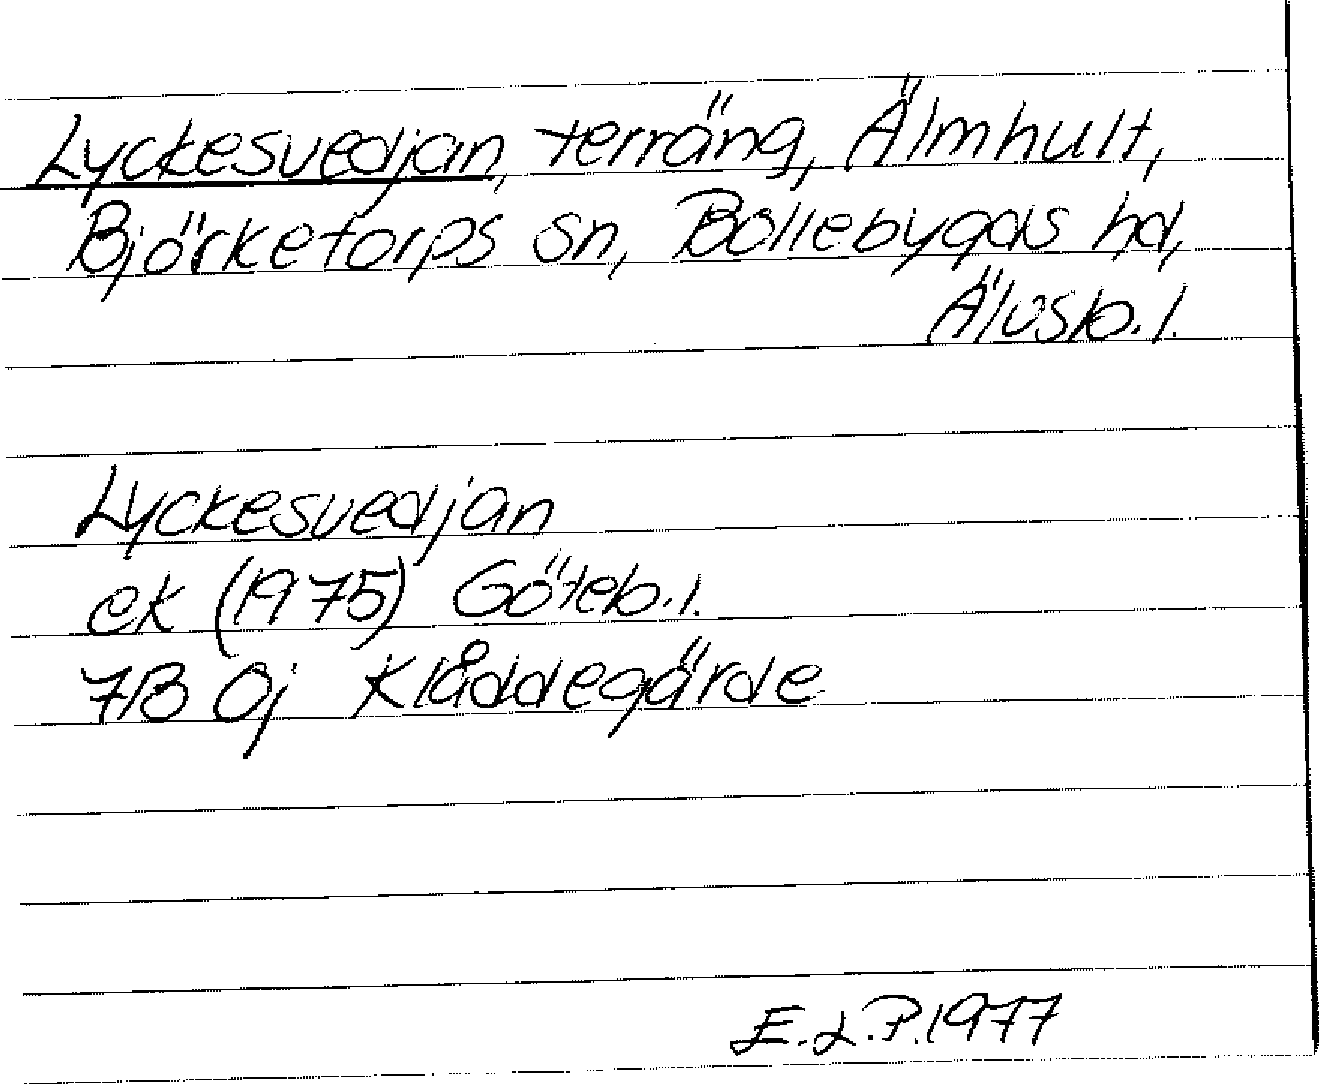 Lyckesvedjan, terräng, Älmhult,
Björketorps sn, Bollebygds hd,
Älvsb. l.
Lyckesvedjan
ek (1975) Göteb. l.
7B 0j Klåddegärde
E.L.P. 1977